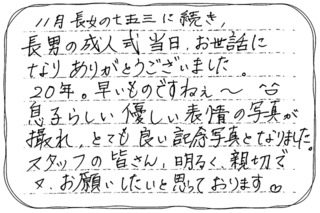 11月長女の七五三に続き,
長男の成人式当日、お世話に
なりありがとうございました。
20年。早いものですねぇ〜
息子らしい優しい表情の写真が
撮れ、とても良い記念写真となりました。
スタッフの皆さん、明るく、親切で
又、お願いしたいと思っております♡